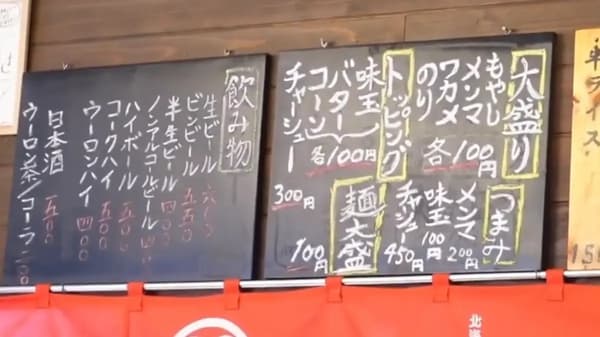 大盛り
もやし
メンマ
ワカメ
のり
各100円
つまみ
メンマ 200円
味玉 100円
チャーシュー 450円
トッピング
味玉
バター
コーン
各100円
チャーシュー 300円
麺大盛 100円
飲み物
生ビール 六〇〇
ビンビール 五五〇
半生ビール 四〇〇
ノンアルコールビール 四〇〇
ハイボール 五〇〇
コークハイ 五〇〇
ウーロンハイ 四〇〇
日本酒 五〇〇
ウーロン茶/コーラ 二〇〇